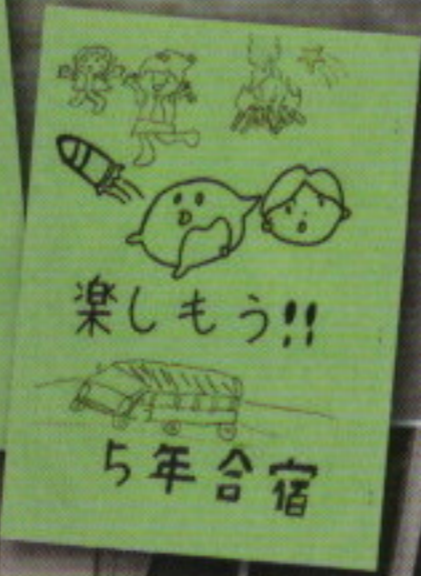 楽しもう!!
5年合宿